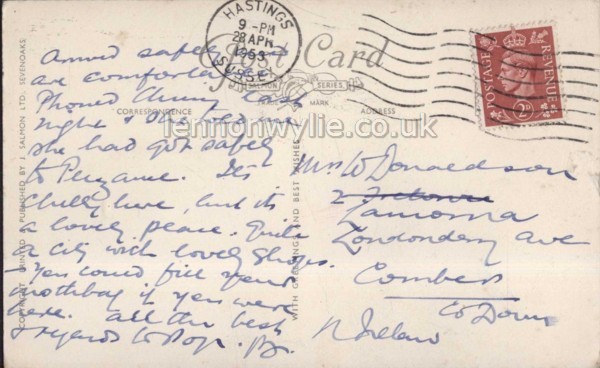 HASTINGS
9 - PM
28 APR
1953
SUSSEX
Post Card
SALMON SERIES
MARK
CORRESPONDENCE
ADDRESS
POSTAGE REVENUE
2D
COPYRIGHT PRINTED & PUBLISHED BY J. SALMON LTD., SEVENOAKS.
WITH GREETINGS AND BEST WISHES
lennonwylie.co.uk
Arrived safely and
are comfortable
Phoned last
night & she told me
she had got safely
to Penzance. It's
chilly here, but it's
a lovely place. Quite
a city with lovely shops.
You could fill your
mothbag if you were
here. All the best
& regards to
Mrs W Donaldson
2
Lamorna
Londonderry Ave
Comber
Co Down
N Ireland